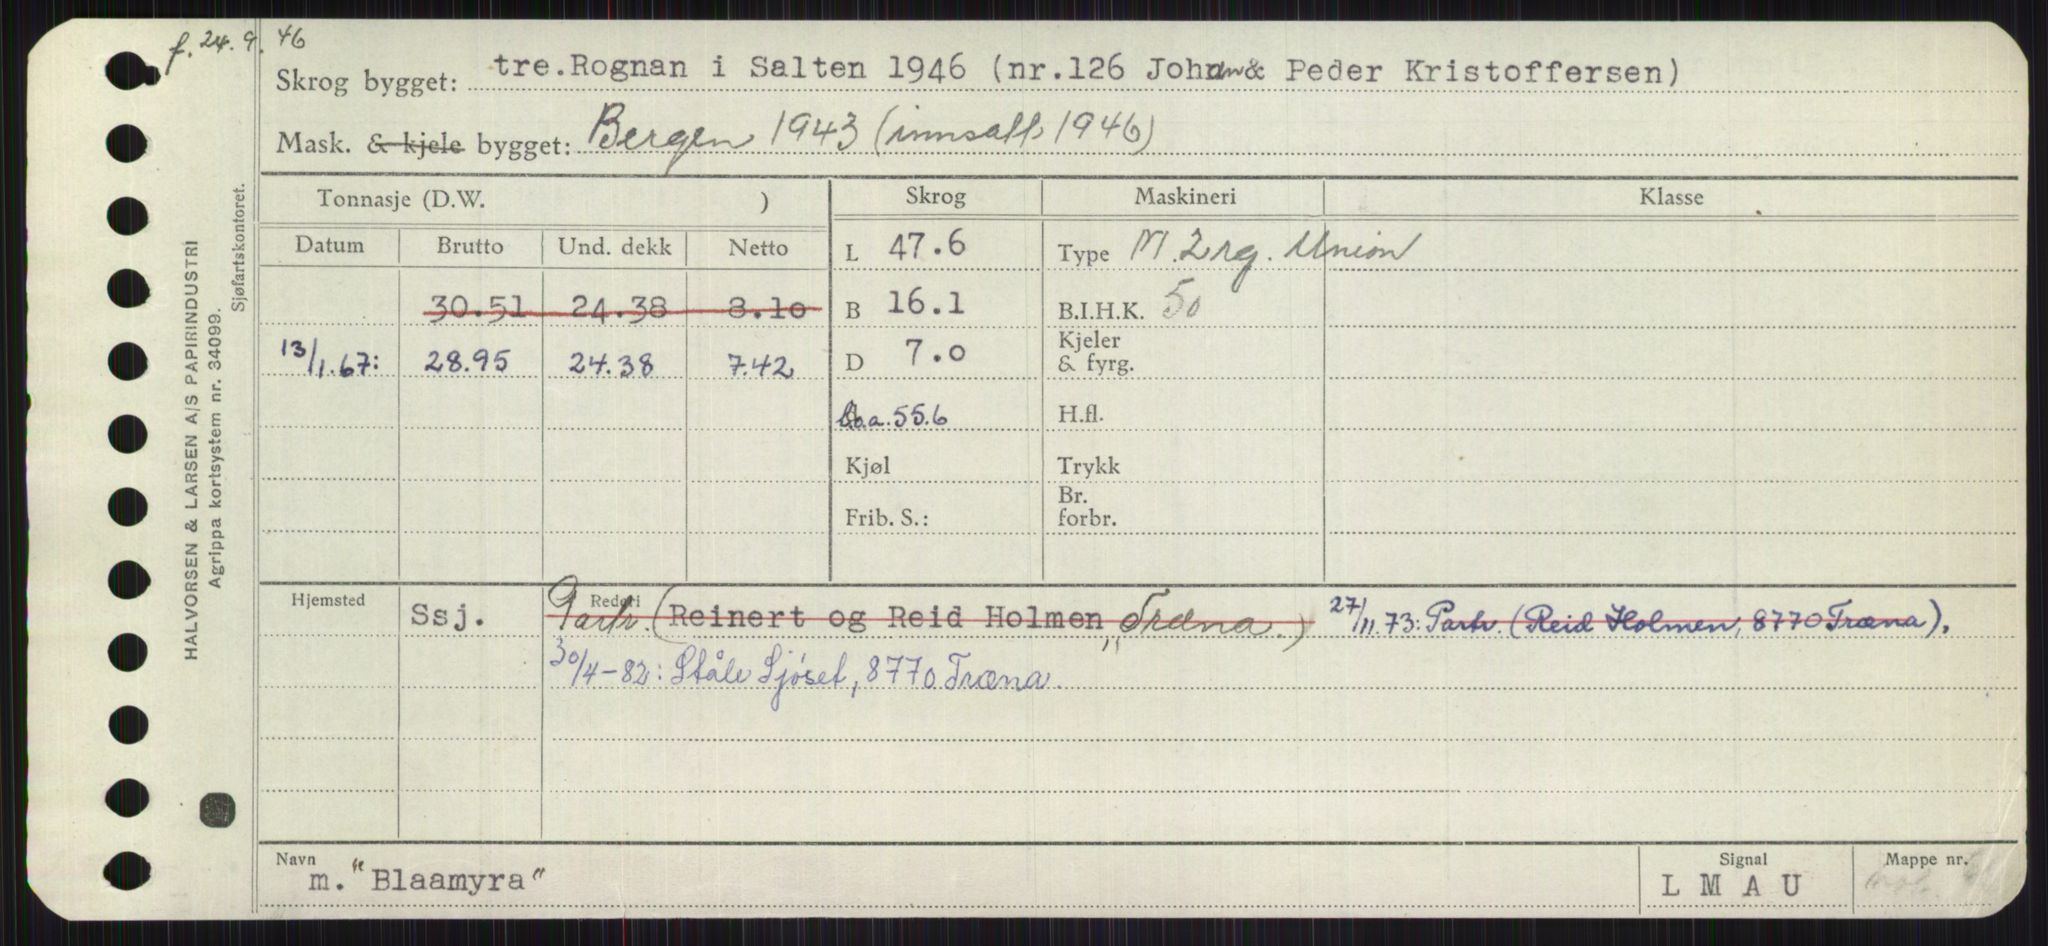 f. 24.9.46
Skrog bygget: tre. Rognan i Salten 1946 (nr.126 Johan & Peder Kristoffersen)
Mask. & kjele bygget: Bergen 1943 (innsatt 1946)
Tonnasje (D.W. ) Skrog Maskineri Klasse
Datum Brutto Und. dekk Netto L 47.6 Type M. 2 rg. Union
30.51 24.38 8.10 B 16.1 B.I.H.K. 50
13/1.67: 28.95 24.38 7.42 D 7.0 Kjeler & fyrg.
o.a. 55.6 H.fl.
Kjøl Trykk
Frib. S.: Br. forbr.
Hjemsted Ssj. Rederi Partr. (Reinert og Reid Holmen, Træna.) 27/11.73: Partr. (Reid Holmen, 8770 Træna).
30/4-82: Ståle Sjøset, 8770 Træna.
Navn Signal Mappe nr.
m. "Blaamyra" L M A U
HALVORSEN & LARSEN A/S PAPIRINDUSTRI
Agrippa kortsystem nr. 34099.
Sjøfartskontoret.